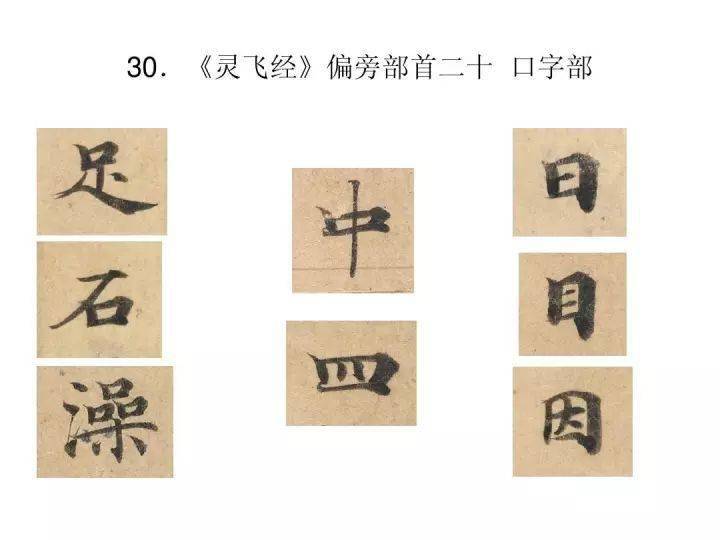 30. 《灵飞经》偏旁部首二十 口字部
足
石
澡
中
四
日
目
因